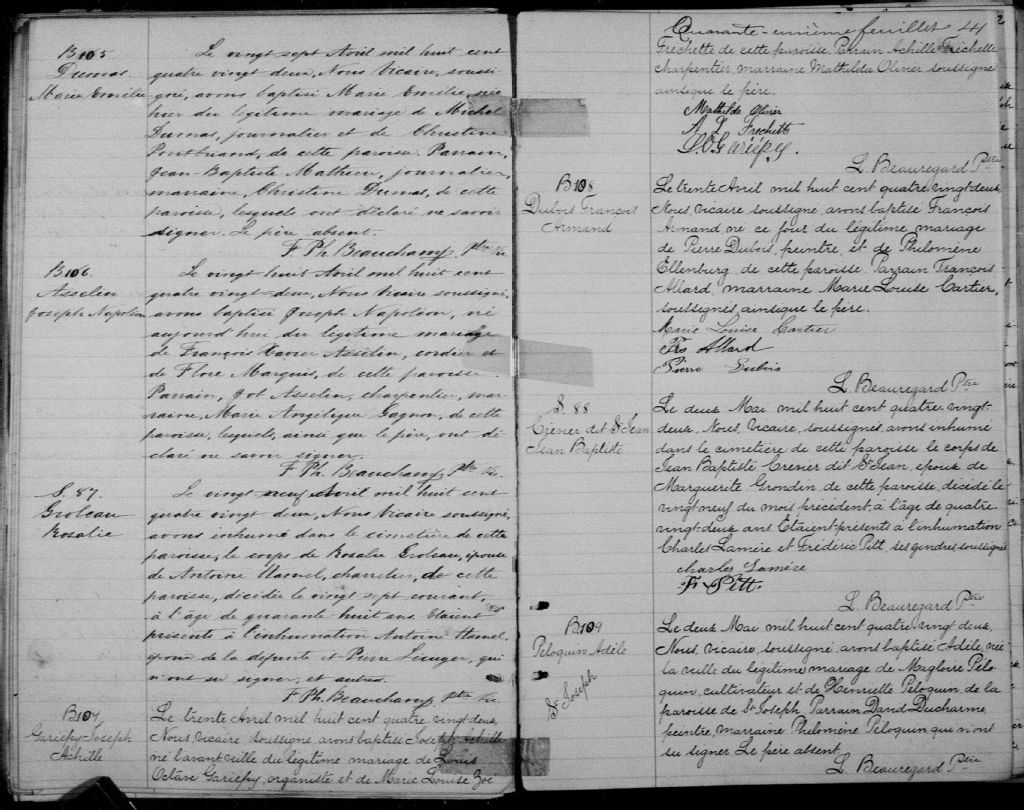 B105
Dumas
Marie Emélie
Le vingt sept Avril mil huit cent
quatre vingt deux, Nous Vicaire, soussi-
gné, avons baptisé Marie Emélie, née
hier du légitime mariage de Michel
Dumas, journalier et de Christine
Pontbriand, de cette paroisse. Parrain,
Jean-Baptiste Mathieu, journalier,
marraine, Christine Dumas, de cette
paroisse, lesquels ont déclaré ne savoir
signer. Le père absent.
F. Ph. Beauchamp, Ptre Vic
B106
Asselin
Joseph Napoléon
Le vingt huit Avril mil huit cent
quatre vingt-deux, Nous Vicaire soussigné,
avons baptisé Joseph Napoléon, né
aujourd'hui du légitime mariage
de François Xavier Asselin, cordier et
de Flore Marquis, de cette paroisse.
Parrain, Jos Asselin, charpentier, mar-
raine, Marie Angélique Gagnon, de cette
paroisse, lesquels, ainsi que le père, ont dé-
claré ne savoir signer.
F. Ph. Beauchamp, Ptre Vic.
S. 87.
Groleau
Rosalie
Le vingt-neuf Avril mil huit cent
quatre vingt deux, Nous Vicaire soussigné,
avons inhumé dans le cimetière de cette
paroisse, le corps de Rosalie Groleau, épouse
de Antoine Hamel, charretier, de cette
paroisse, décédée le vingt sept courant,
à l'âge de quarante huit ans. Etaient
présents à l'inhumation Antoine Hamel,
époux de la défunte et Pierre, qui
n'ont su signer, et autres.
F. Ph. Beauchamp, Ptre Vic.
B107
Gariépy Joseph
Achille
Le trente Avril mil huit cent quatre vingt deux,
Nous, vicaire soussigné avons baptisé Joseph Achille
né l'avant veille du légitime mariage de Louis
Octave Gariépy, organiste et de Marie Louise Zoé
Quarante-unième feuillet 41
Fréchette de cette paroisse. Parrain Achille Fréchette
charpentier, marraine Mathilda Olivier soussignés
ainsique le père.
Mathilda Olivier
A L Frechette
L.O. Gariépy.
L. Beauregard Ptre
B108
Dubois François
Armand
Le trente Avril mil huit cent quatre vingt-deux
Nous, vicaire soussigné, avons baptisé François
Armand né ce jour du légitime mariage
de Pierre Dubois, peintre, et de Philomène
Ellenburg, de cette paroisse. Parrain François
Allard marraine Marie Louise Cartier,
soussignés, ainsique le père.
Marie Louise Cartier
Frs Allard
Pierre Dubois
L. Beauregard Ptre
S. 88
Crener dit St Jean
Jean Baptiste
Le deux Mai mil huit cent quatre vingt-
deux, Nous, Vicaire, soussignés, avons inhumé
dans le cimetière de cette paroisse le corps de
Jean Baptiste Crener dit St Jean, époux de
Marguerite Grondin, de cette paroisse, décédé le
vingt neuf du mois précédent, à l'âge de quatre
vingt-deux ans. Etaient présents à l'inhumation
Charles Lamère et Frédéric Pitt, ses gendres, soussignés
charles Lamère
F. Pitt.
L. Beauregard Ptre
B109
Peloquin Adèle
St Joseph
Le deux Mai mil huit cent quatre vingt deux,
Nous, vicaire, soussigné, avons baptisé Adèle, née
la veille du légitime mariage de Magloire Pelo-
quin, cultivateur et de Henriette Péloquin, de la
paroisse de St Joseph. Parrain David Ducharme,
peintre, marraine Philomène Peloquin qui n'ont
su signer. Le père absent.
L. Beauregard Ptre